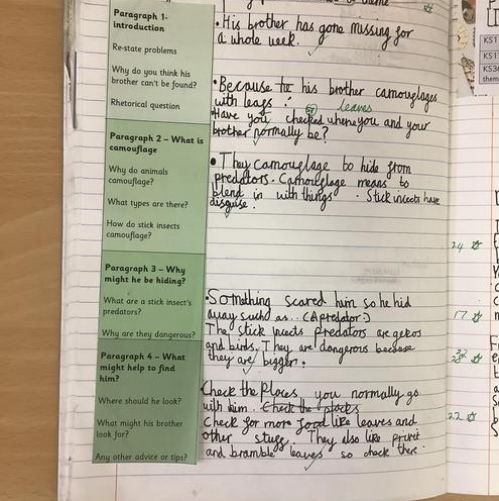 Paragraph 1-
Introduction
Re-state problems
Why do you think his
brother can't be found?
Rhetorical question
Paragraph 2 - What is
camouflage
Why do animals
camouflage?
What types are there?
How do stick insects
camouflage?
Paragraph 3 - Why
might he be hiding?
What are a stick insect's
predators?
Why are they dangerous?
Paragraph 4 - What
might help to find
him?
Where should he look?
What might his brother
look for?
Any other advice or tips?
• His brother has gone missing for
a whole week.
• Because he his brother camouflages
with leafs.
leaves
Have you checked where you and your
brother normally be?
• They camouflage to hide from
predators. Camouflage means to
blend in with things. Stick insects have
disguise.
• Something scared him so he hid
away such as.. (A predator.)
The stick insects predators are gekos
and birds. They are dangerous because
they are bigger.
Check the Places you normally go
with him. Check the places
Check for more food like leaves and
other stuff. They also like privet
and bramble leaves so check there.
24
17
22
KS1
KS1